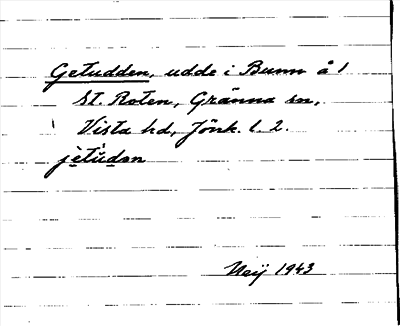 Getudden, udde i Bunn å 1
St. Roten, Gränna sn,
Vista hd, Jönk. l. 2.
jètúdən
1943